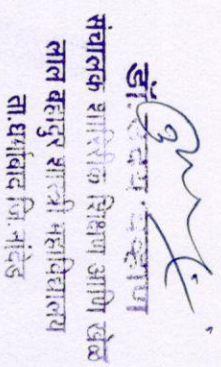 डॉ.
संचालक शारीरिक शिक्षण आणि खेळ
लाल बहादुर शास्त्री महाविद्यालय
ता.धर्माबाद जि.नांदेड